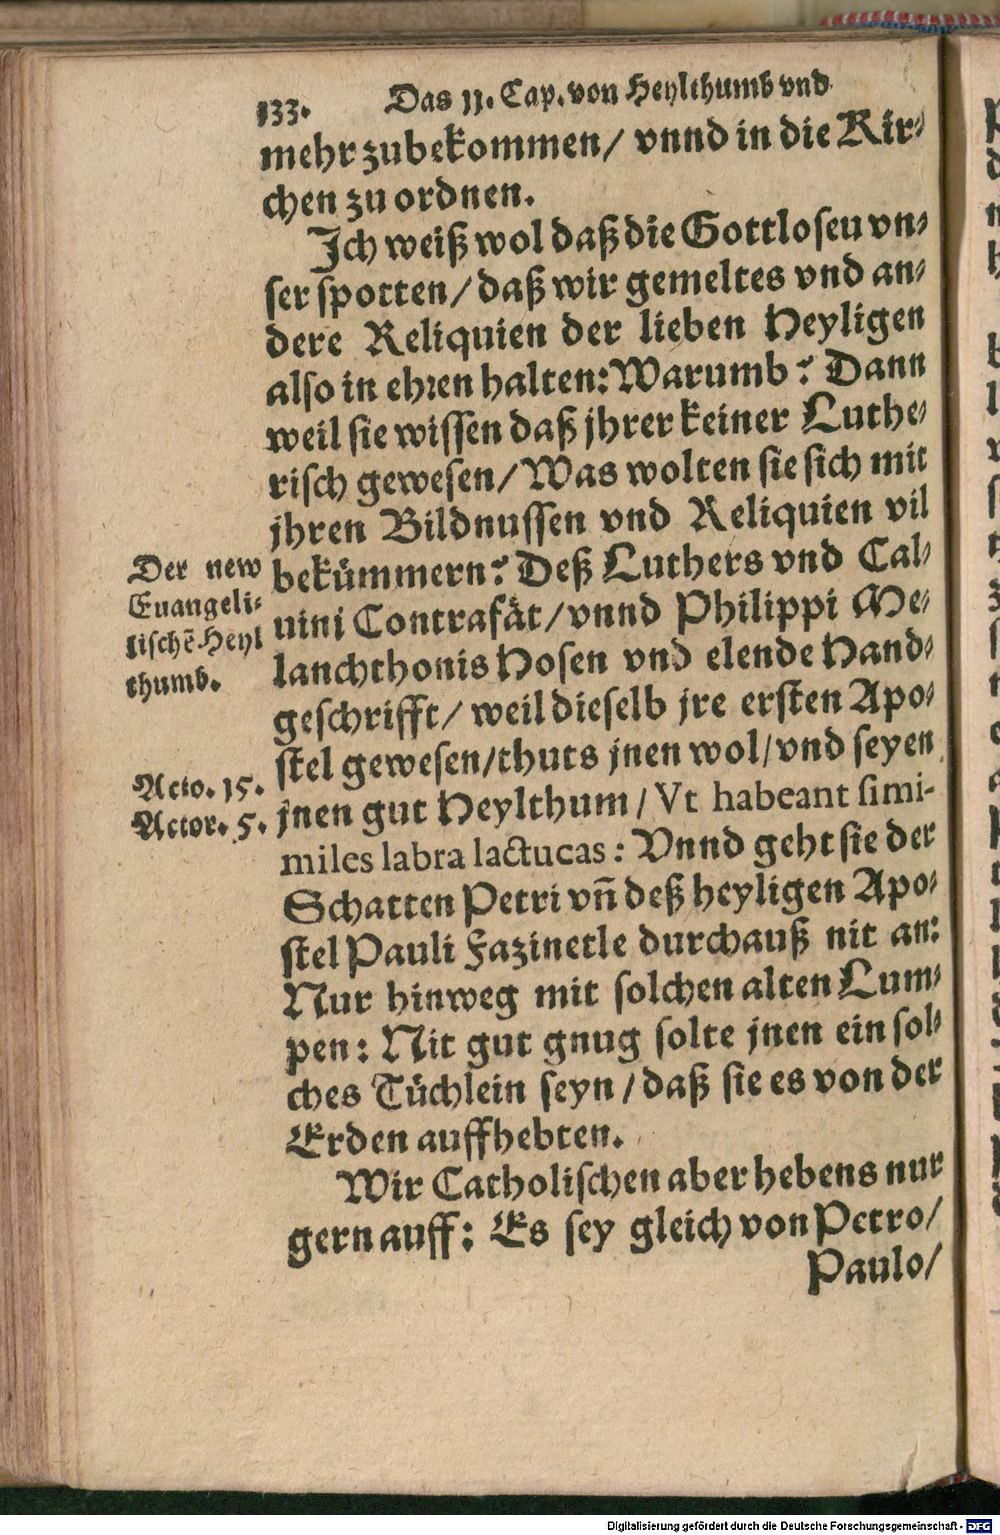 133. Das 11. Cap. von Heylthumb vnd
mehr zubekommen/ vnnd in die Kir-
chen zu ordnen.
Ich weiß wol daß die Gottloseu vn-
ser spotten/ daß wir gemeltes vnd an-
dere Reliquien der lieben Heyligen
also in ehren halten: Warumb? Dann
weil sie wissen daß jhrer keiner Luthe-
risch gewesen/ Was wolten sie sich mit
jhren Bildnussen vnd Reliquien vil
bekümmern? Deß Luthers vnd Cal-
uini Contrafät/ vnnd Philippi Me-
lanchthonis Hosen vnd elende Hand-
geschrifft/ weil dieselb jre ersten Apo-
stel gewesen/ thuts jnen wol/ vnd seyen
jnen gut Heylthum/ Vt habeant simi-
miles labra lactucas: Vnnd geht sie der
Schatten Petri vñ deß heyligen Apo-
stel Pauli Fazinetle durchauß nit an:
Nur hinweg mit solchen alten Lum-
pen: Nit gut gnug solte jnen ein sol-
ches Tüchlein seyn/ daß sie es von der
Erden auffhebten.
Wir Catholischen aber hebens nur
gern auff: Es sey gleich von Petro/
Paulo/
Der new
Euangeli-
tischē Heyl
thumb.
Acto. 15.
Actor. 5.
Digitalisierung gefördert durch die Deutsche Forschungsgemeinschaft - DFG